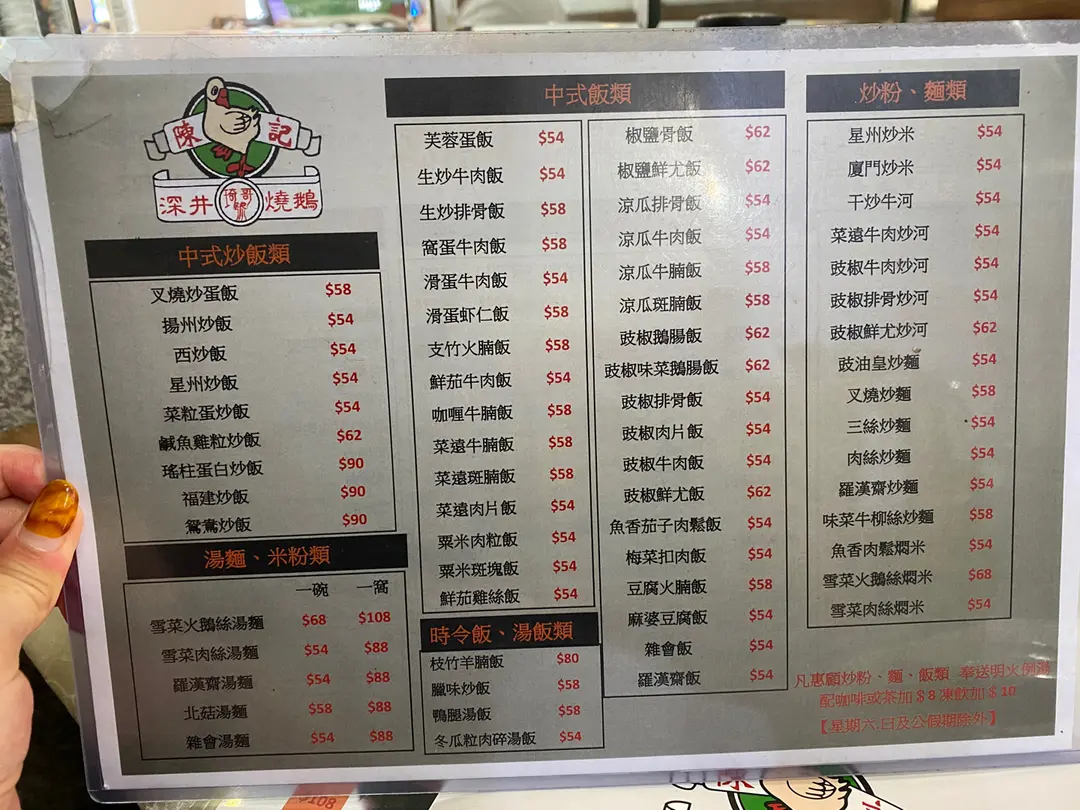 陳記
深井琦哥號燒鵝
中式炒飯類
叉燒炒蛋飯 $58
揚州炒飯 $54
西炒飯 $54
星州炒飯 $54
菜粒蛋炒飯 $54
鹹魚雞粒炒飯 $62
瑤柱蛋白炒飯 $90
福建炒飯 $90
鴛鴦炒飯 $90
湯麵、米粉類
一碗 一窩
雪菜火鵝絲湯麵 $68 $108
雪菜肉絲湯麵 $54 $88
羅漢齋湯麵 $54 $88
北菇湯麵 $58 $88
雜會湯麵 $54 $88
中式飯類
芙蓉蛋飯 $54
生炒牛肉飯 $54
生炒排骨飯 $58
窩蛋牛肉飯 $58
滑蛋牛肉飯 $54
滑蛋虾仁飯 $58
支竹火腩飯 $58
鮮茄牛肉飯 $54
咖喱牛腩飯 $58
菜遠牛腩飯 $58
菜遠斑腩飯 $58
菜遠肉片飯 $54
粟米肉粒飯 $54
粟米斑塊飯 $54
鮮茄雞絲飯 $54
時令飯、湯飯類
枝竹羊腩飯 $80
臘味炒飯 $58
鴨腿湯飯 $58
冬瓜粒肉碎湯飯 $54
椒鹽骨飯 $62
椒鹽鮮尤飯 $62
涼瓜排骨飯 $54
涼瓜牛肉飯 $54
涼瓜牛腩飯 $58
涼瓜斑腩飯 $58
豉椒鵝腸飯 $62
豉椒味菜鵝腸飯 $62
豉椒排骨飯 $54
豉椒肉片飯 $54
豉椒牛肉飯 $54
豉椒鮮尤飯 $62
魚香茄子肉鬆飯 $54
梅菜扣肉飯 $54
豆腐火腩飯 $58
麻婆豆腐飯 $54
雜會飯 $54
羅漢齋飯 $54
炒粉、麵類
星州炒米 $54
廈門炒米 $54
干炒牛河 $54
菜遠牛肉炒河 $54
豉椒牛肉炒河 $54
豉椒排骨炒河 $54
豉椒鮮尤炒河 $62
豉油皇炒麵 $54
叉燒炒麵 $58
三絲炒麵 $54
肉絲炒麵 $54
羅漢齋炒麵 $54
味菜牛柳絲炒麵 $58
魚香肉鬆燜米 $54
雪菜火鵝絲燜米 $68
雪菜肉絲燜米 $54
凡惠顧炒粉、麵、飯類 奉送明火例湯
配咖啡或茶加$8凍飲加$10
【星期六.日及公假期除外】
陳